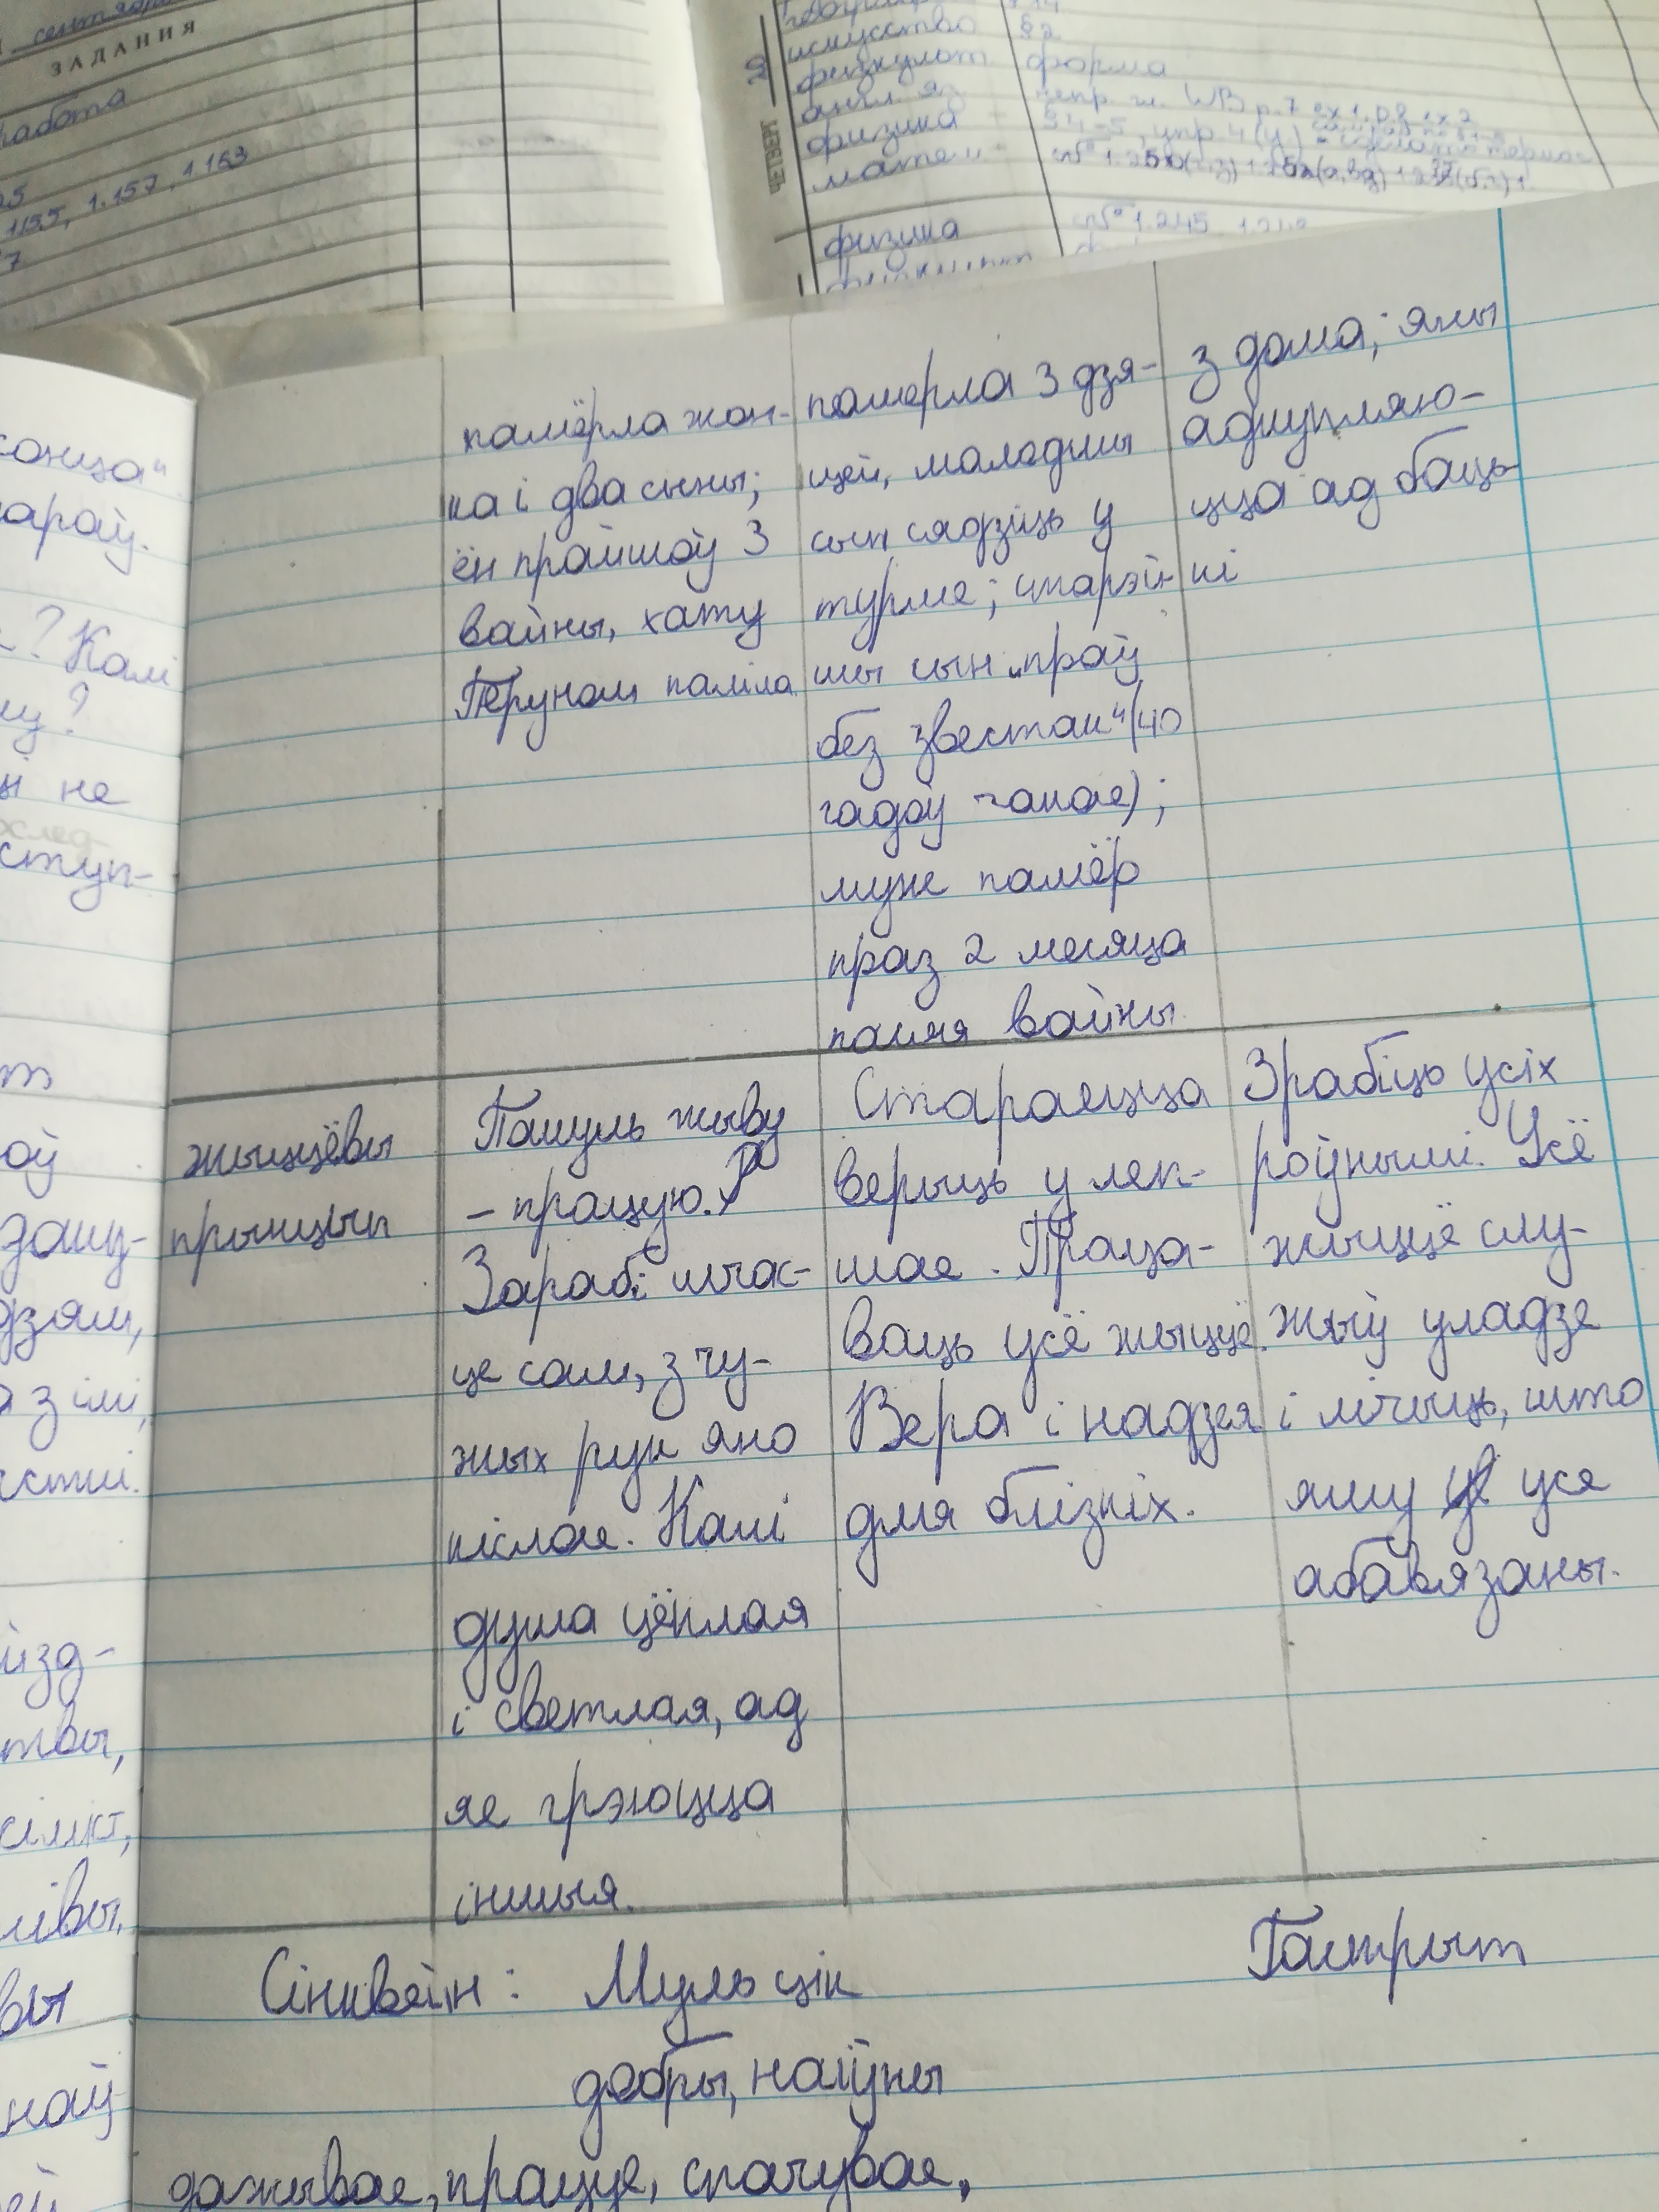 сентябрь
ЗАДАНИЯ
работа
1.155, 1.157, 1.163
ЧЕТВЕРГ
20
искусство §2
физкульт форма
англ. яз.
физика
матем
физика № 1.245
сонца"
араў.
? Калі
му?
не
ступ-
оў
дзям,
з імі,
твы,
лівы,
наў-
памёрла жон-
ка і два сыны;
ён прайшоў 3
вайны, хату
Перуном паліла
памерла 3 дзя-
цей, малодшы
сын сядзіць у
турме; старэй-
шы сын "праў
без звестак" (40
гадоў чакае);
муж памёр
праз 2 месяца
пасля вайны
з дома; яны
адкупляю-
цца ад баць-
кі
жыццёвы
прынцып
Пакуль жыву
- працую.
Зарабі шчас-
це сам, з чу-
жых рук яно
кіслае. Калі
душа цёплая
і светлая, ад
яе грэюцца
іншыя.
Стараецца
верыць у леп-
шае. Праца-
ваць усё жыццё.
Вера і надзея
для блізкіх.
Зрабіць усіх
роўнымі. Усё
жыццё слу-
жыў уладзе
і лічыць, што
яму усе
абавязаны.
Сінквейн: Мульцік
Гастрыт
добры, наіўны
дажывае, працуе, спачувае,